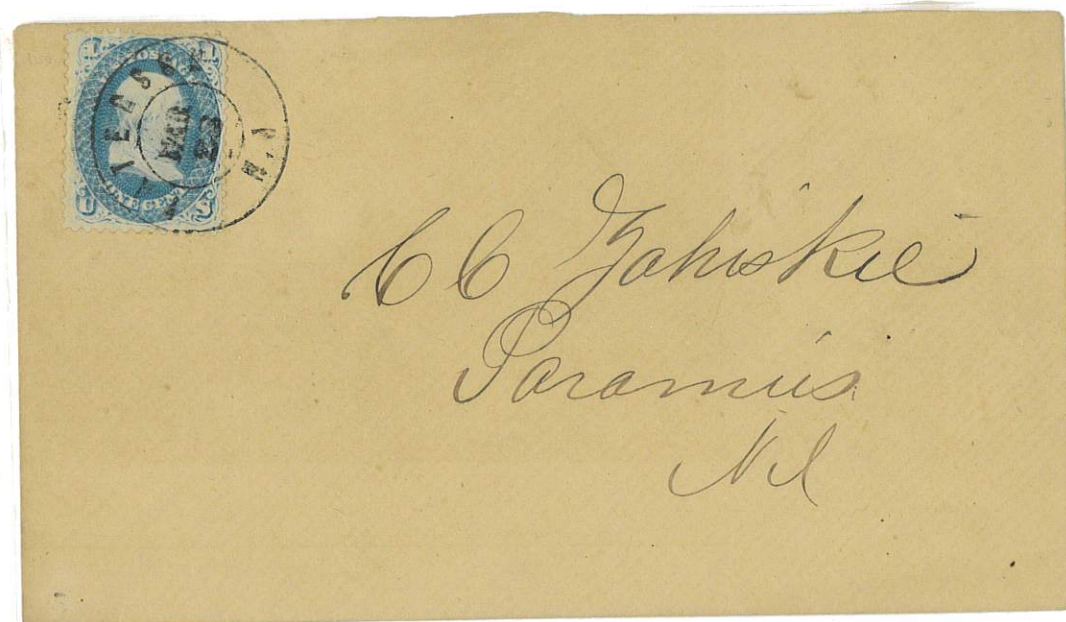 1 1
POSTAGE
ONE CENT
U S
MAR
23
N.J.
C C Zabriskie
Paramus
N J